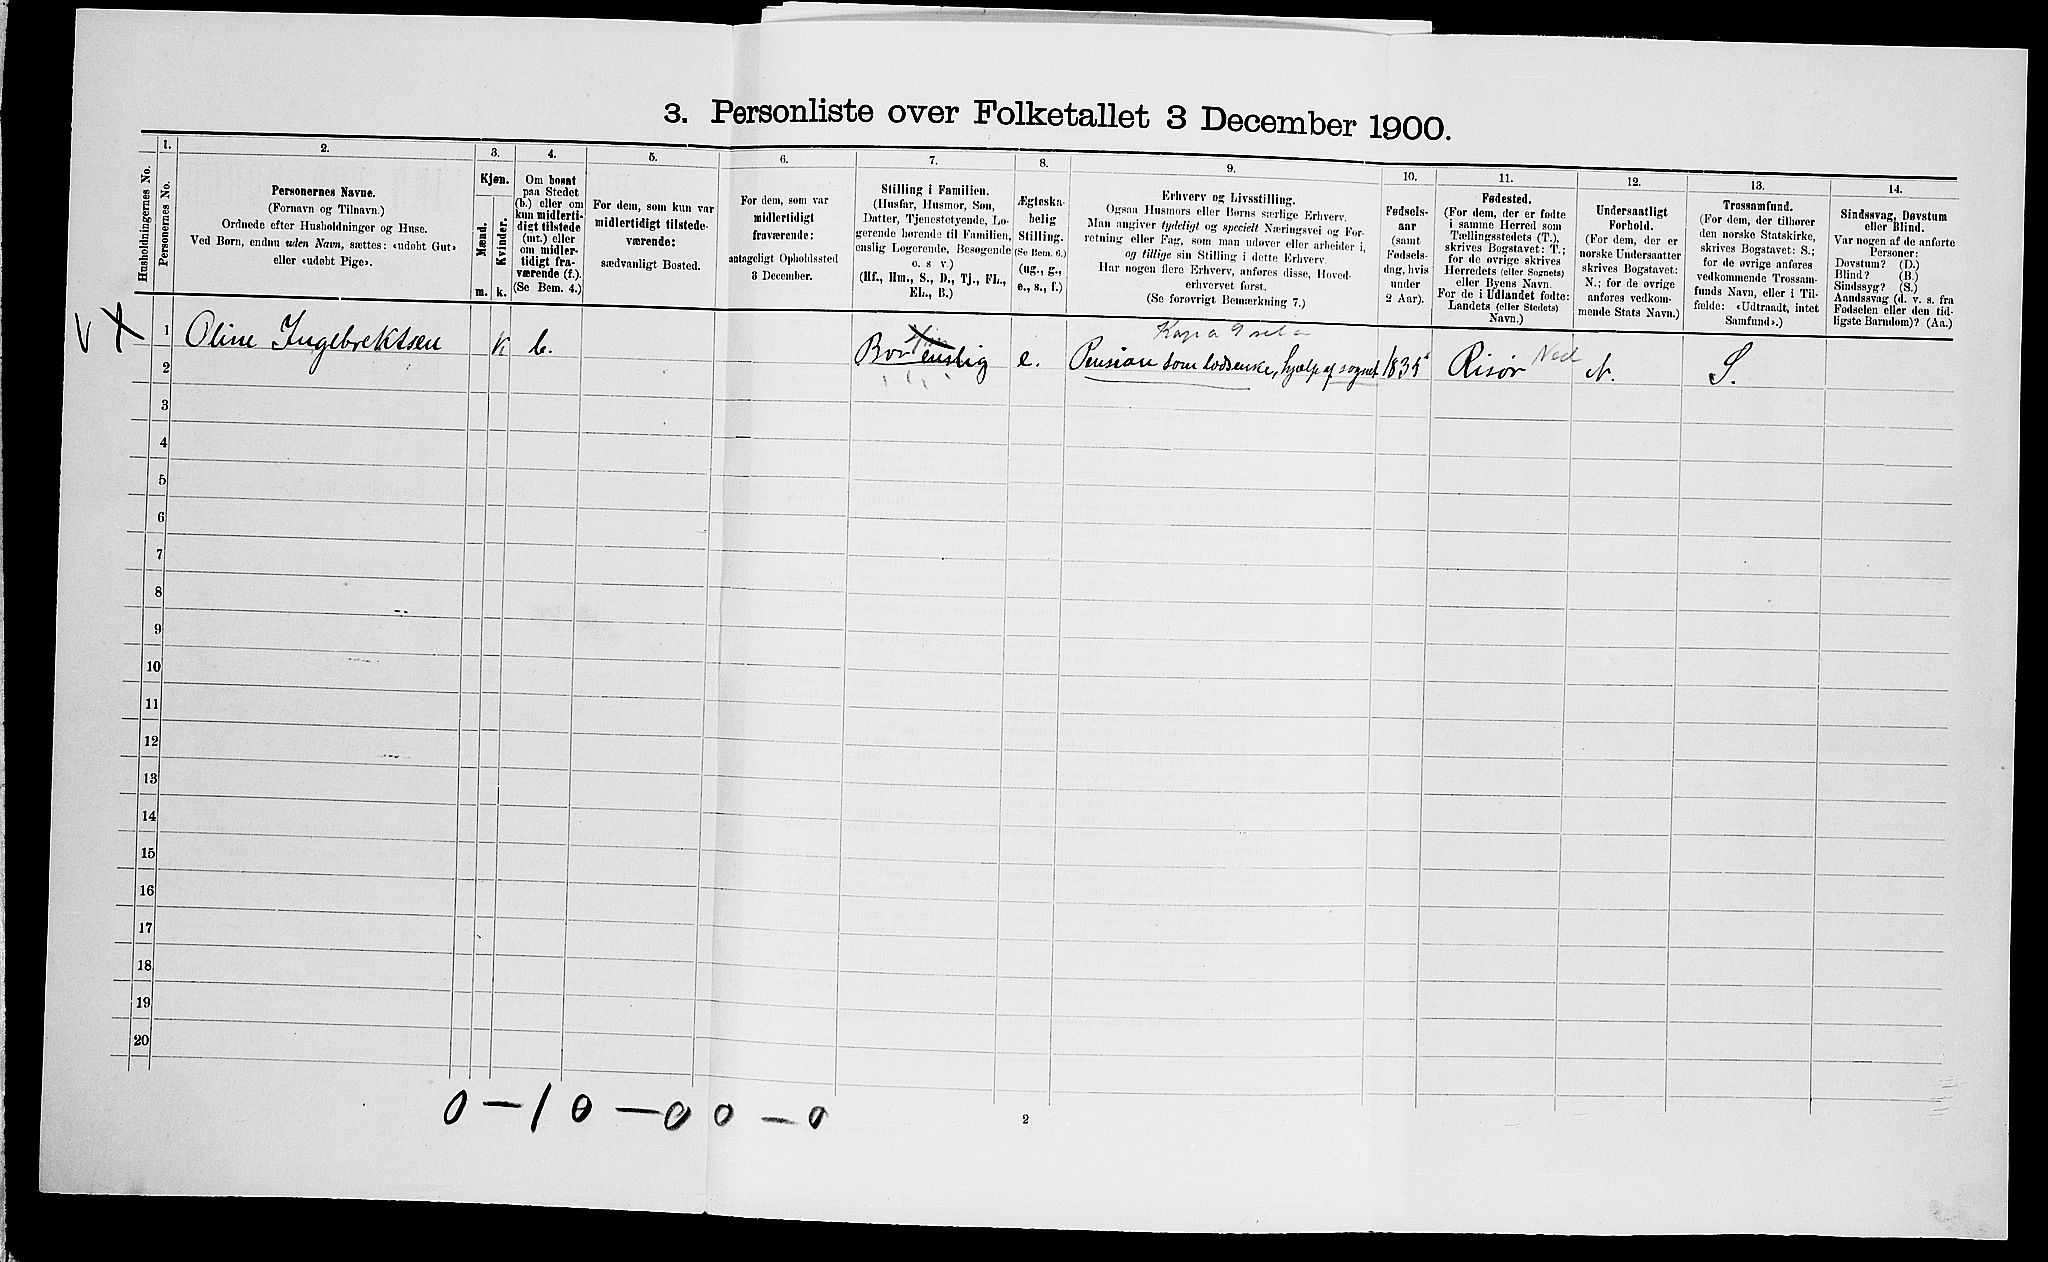 3. Personliste over Folketallet 3 December 1900.
Husholdningernes No.
1.
Personernes No.
2.
Personernes Navne.
(Fornavn og Tilnavn.)
Ordnede efter Husholdninger og Huse.
Ved Børn, endnu uden Navn, sættes: «udøbt Gut»
eller «udøbt Pige».
3.
Kjøn.
Mænd.
m.
Kvinder.
k.
4.
Om bosat
paa Stedet
(b.) eller om
kun midlerti-
digt tilstede
(mt.) eller
om midler-
tidigt fra-
værende (f.).
(Se Bem. 4.)
5.
For dem, som kun var
midlertidigt tilstede-
værende:
sædvanligt Bosted.
6.
For dem, som var
midlertidigt
fraværende:
antageligt Opholdssted
3 December.
7.
Stilling i Familien.
(Husfar, Husmor, Søn,
Datter, Tjenestetyende, Lo-
gerende hørende til Familien,
enslig Logerende, Besøgende
o. s v.)
(Hf., Hm., S., D., Tj., FL.,
EL., B.)
8.
Ægteska-
belig
Stilling.
(Se Bem. 6.)
(ug., g.,
e., s., f.)
9.
Erhverv og Livsstilling.
Ogsaa Husmors eller Børns særlige Erhverv.
Man angiver tydeligt og specielt Næringsvei og For-
retning eller Fag, som man udøver eller arbeider i,
og tillige sin Stilling i dette Erhverv.
Har nogen flere Erhverv, anføres disse, Hoved-
erhvervet først.
(Se forøvrigt Bemærkning 7.)
10.
Fødsels-
aar
(samt
Fødsels-
dag, hvis
under
2 Aar).
11.
Fødested.
(For dem, der er fødte
i samme Herred som
Tællingsstedets (T.),
skrives Bogstavet: T.;
for de øvrige skrives
Herredets (eller Sognets)
eller Byens Navn.
For de i Udlandet fødte:
Landets (eller Stedets)
Navn.)
12.
Undersaatligt
Forhold.
(For dem, der er
norske Undersaatter
skrives Bogstavet:
N.; for de øvrige
anføres vedkom-
mende Stats Navn.)
13.
Trossamfund.
(For dem, der tilhører
den norske Statskirke,
skrives Bogstavet: S.;
for de øvrige anføres
vedkommende Trossam-
funds Navn, eller i Til-
fælde: «Udtraadt, intet
Samfund».)
14.
Sindssvag, Døvstum
eller Blind.
Var nogen af de anførte
Personer:
Døvstum? (D.)
Blind? (B.)
Sindssyg? (S.)
Aandssvag (d. v. s. fra
Fødselen eller den tid-
ligste Barndom)? (Aa.)
V X 1 Oline Ingebrektsen k b. Bor enslig e. Pension som lodsenke, hjælp af sognet 1835 Risør Ned N. S.
2
3
4
5
6
7
8
9
10
11
12
13
14
15
16
17
18
19
20
0 – 1 0 – 0 0 – 0
2